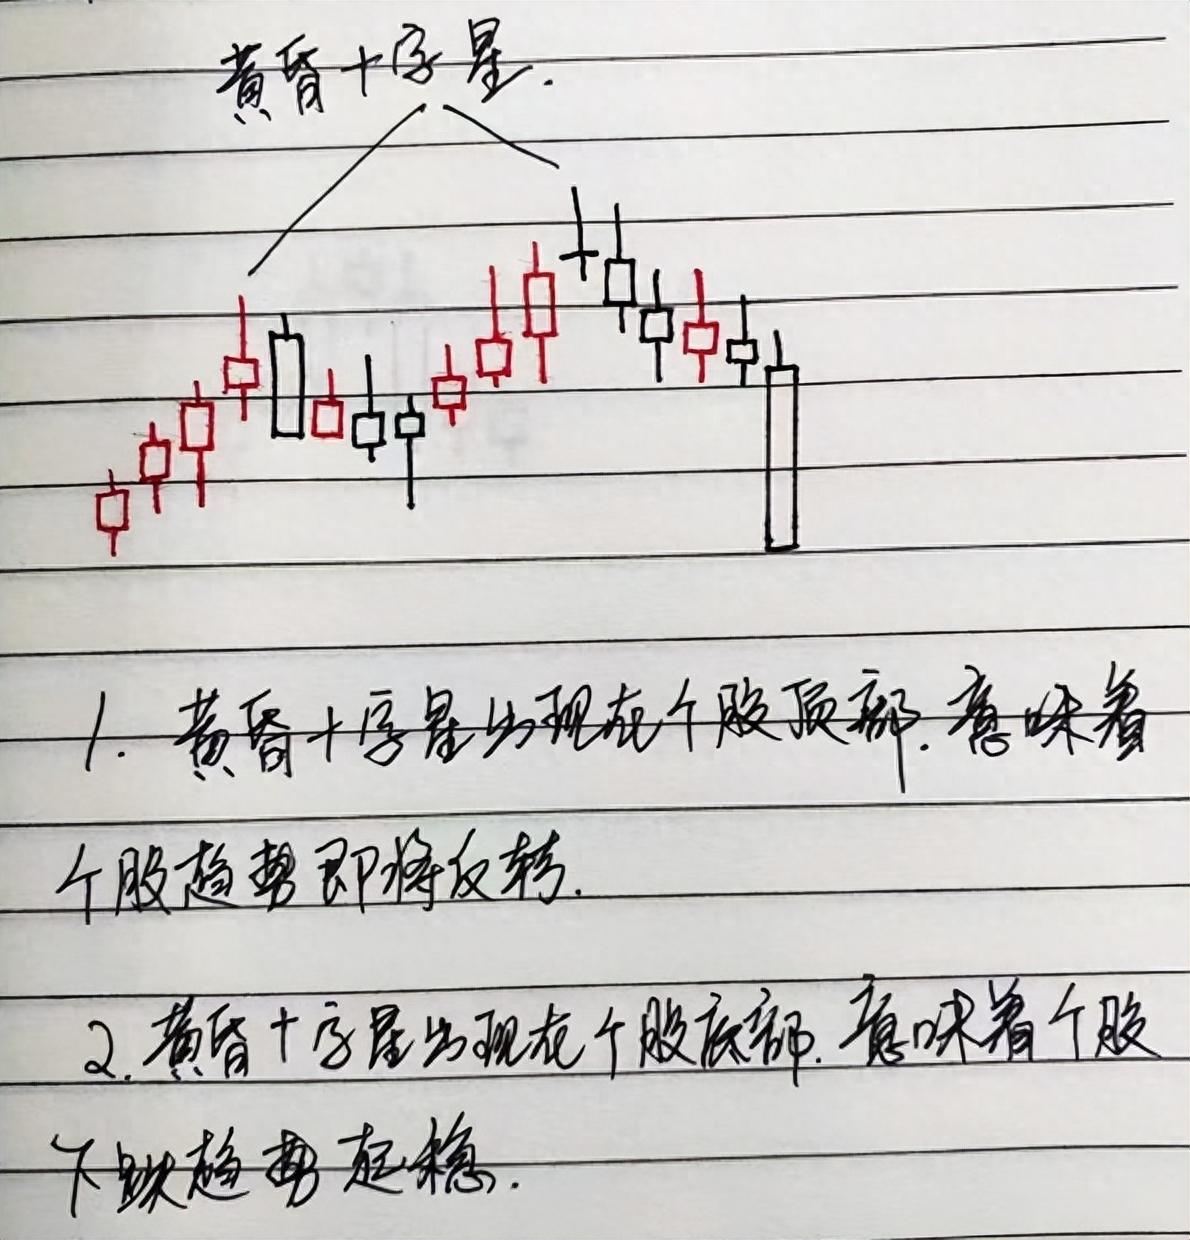 黄昏十字星.
1. 黄昏十字星出现在个股顶部.意味着
个股趋势即将反转.
2.黄昏十字星出现在个股底部.意味着个股
下跌趋势起稳.